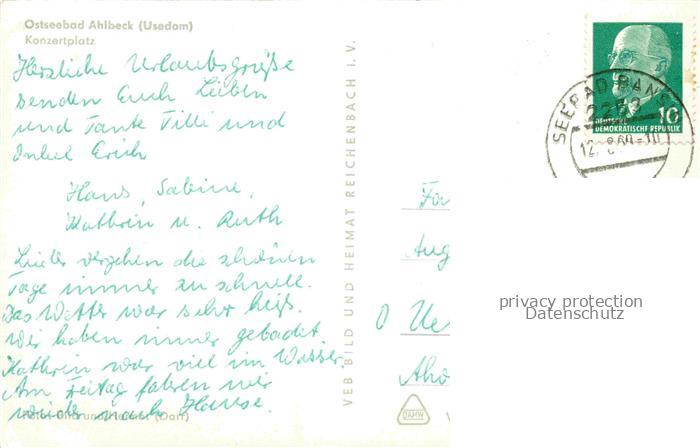 Ostseebad Ahlbeck (Usedom)
Konzertplatz
Herzliche Urlaubsgrüße
senden Euch Lieben
und Tante Tilli und
Onkel Erich
Hans, Sabine,
Kathrin u. Ruth
Leider vergehen die schönen
Tage immer zu schnell.
Das Wetter war sehr heiß.
Wir haben immer gebadet.
Kathrin war viel im Wasser.
Am Freitag fahren wir
wieder nach Hause.
VEB BILD UND HEIMAT REICHENBACH I. V.
SEEBAD BANS
2253
10
DEUTSCHE
DEMOKRATISCHE REPUBLIK
Fa
Aug
privacy protection
Datenschutz
O Ue
DAHW